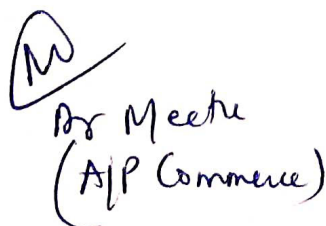 Dr Meetu
(A/P Commerce)